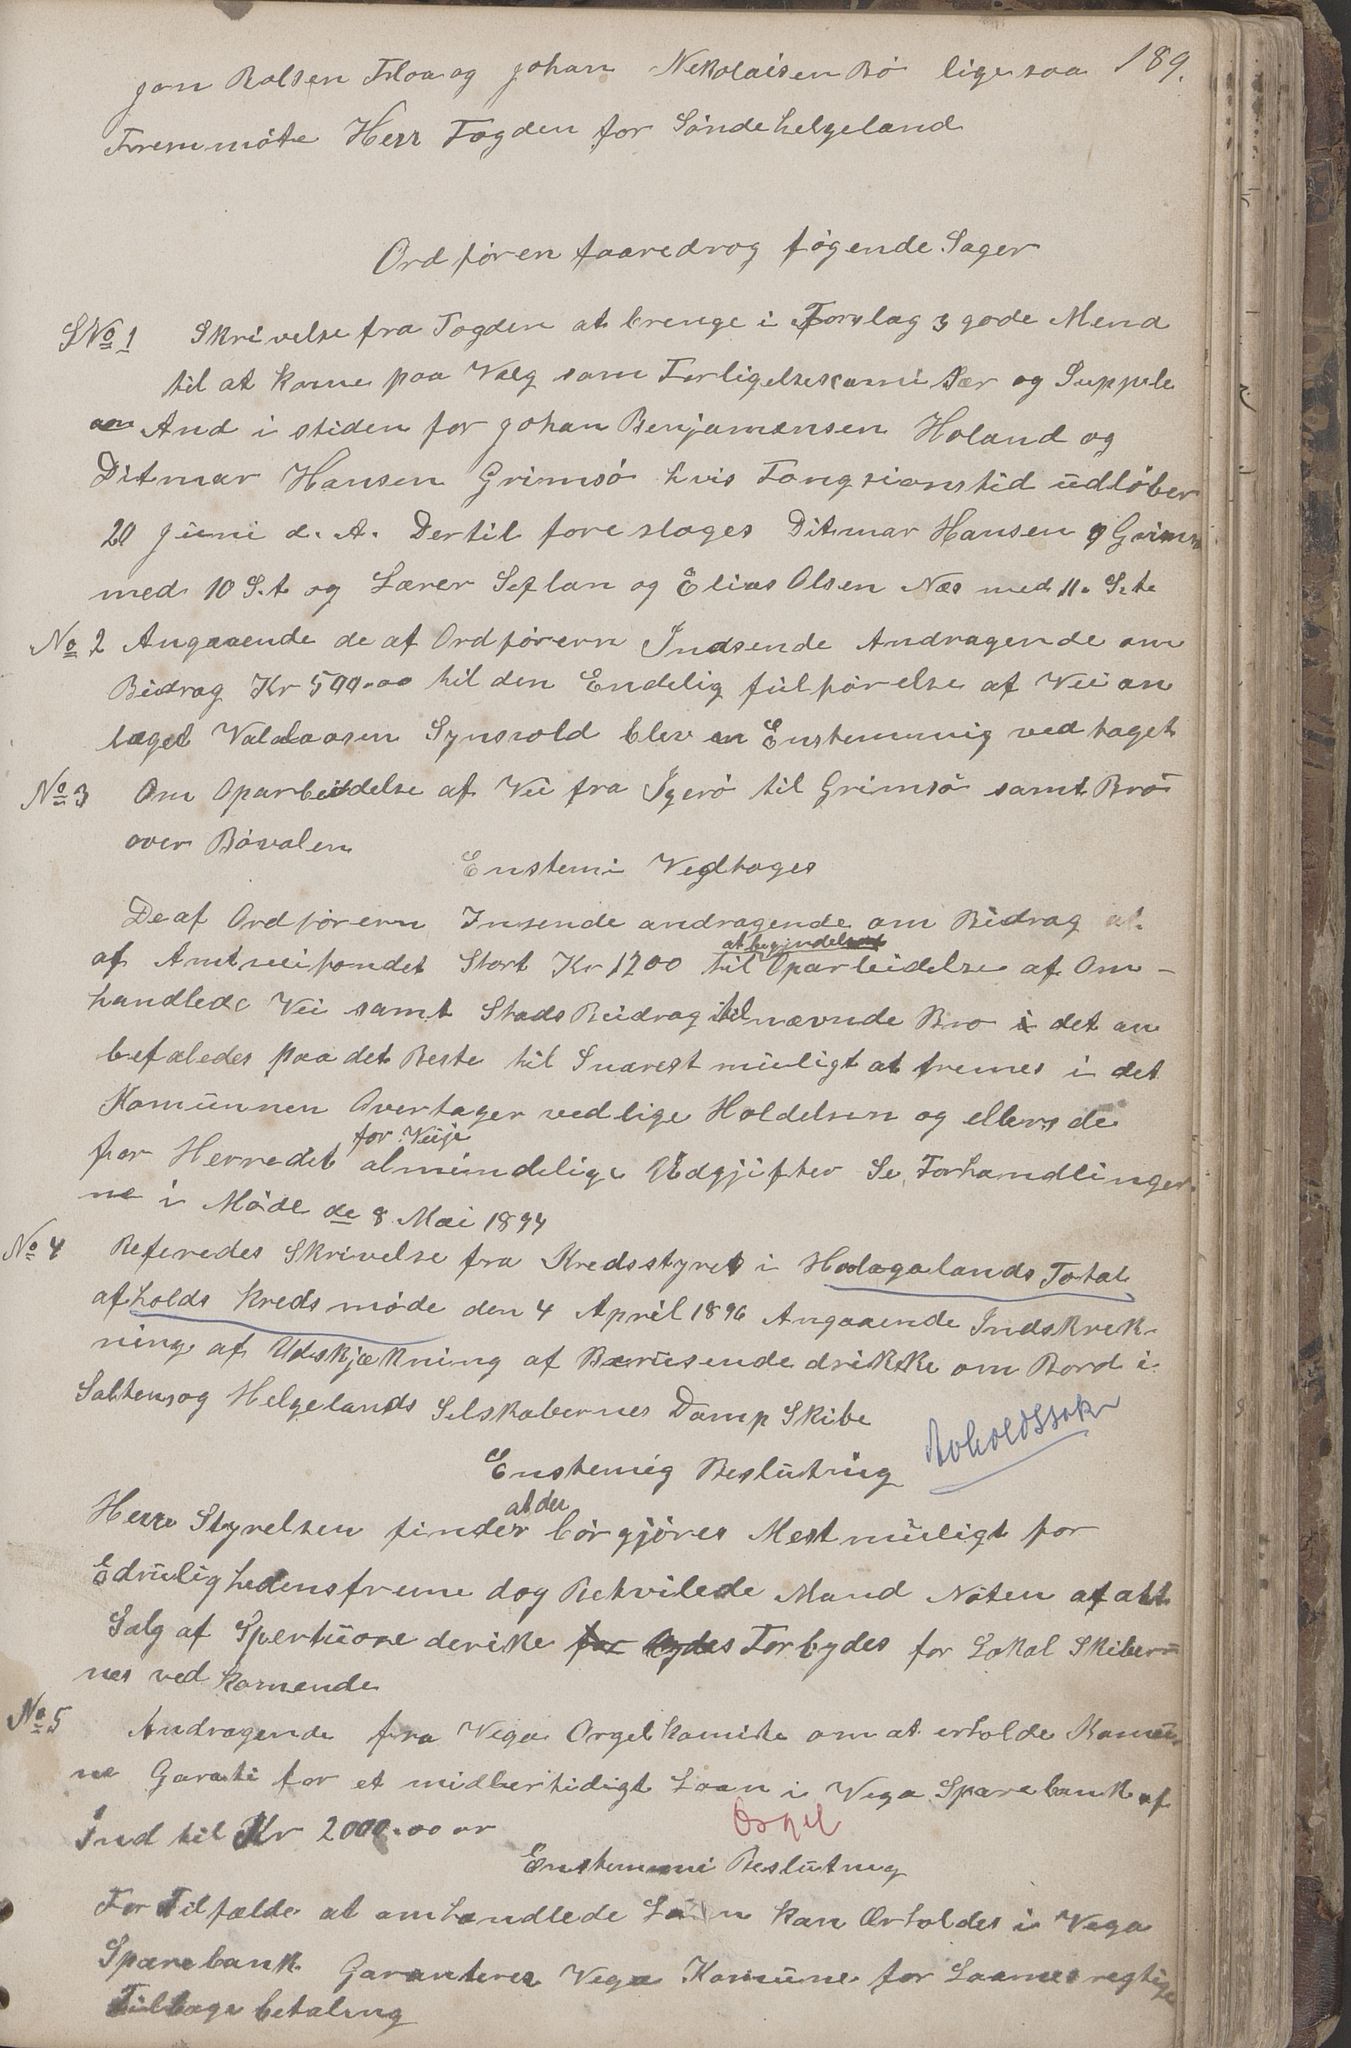 189.
Jon Rolsen Floa og Johan Nekolaisen Bö ligesaa
Fremmöte Herr Fogden for Söndehelgeland
Ordfören faaredrog fögende Sager
SNo 1 Skrivelse fra Fogden at brenge i Forslag 3 gode Mend
til at kome paa Valg som Forligelseskomi sær og Supple
And i stiden for Johan Benjamensen Holand og
Ditmar Hansen Grimsö hvis Fongsionstid udlöber
20 Juni d. A. Dertil fore sloges Ditmar Hansen Grims
med 10 S.t og Lærer Seflan og Elias Olsen Næs med 11. S.te
No 2 Angaaende de af Ordförern Indsende Andragende om
Bidrag Kr 500.00 til den Endelig fulförelse af Vei an
læget Valdaasen Synsvold blev en Enstemmig vedtaget
No 3 Om Oparbeidelse af Vei fra Igerö til Grimsö samt Bro
over Bövalen
Enstemi Vedtoges
De af Ordförern Insende andragende om Bidrag at
at begindelse
af Amtveifondet Stort Kr 1200 til Oparbeidelse af Om-
handlede Vei samt Stads Beidrag til nævnde Bro i det an
befaledes paa det Beste til Snarest muligt at fremes i det
Komunnen Overtager vedlige Holdelsen og ellers de
for Veije
for Herredet almindelige Udgjifter Se Forhandlinger
ne i Möde de 8 Mai 1894
No 4 Referedes Skrivelse fra Kredsstyret i Haalogalands Total
afholds kreds möde den 4 April 1896 Angaaende Indskrek-
ning af Udskjækning af Berusende drikke om Bord i
Saltens og Helgelands Selskabernes Damp Skibe
Avholdssak
Enstemig Beslutning
at der
Herre Styrelsen finder bör gjöres Mest muligt for
Edruligheden sfreme dog Betvilede Mand Noten af att
Salg af Spertuose derike for bydes Forbydes for Lokal Skiber
nes ved komende
No 5 Andragende fra Vega Orgelkomite om at erholde Komu
ne Garati for et midlertidigt Laan i Vega Sparebank af
Ind til Kr 2000.00 or
Orgel
Enstemmi Beslutning
For Tilfælde at omhandlede Laan kan Erholdes i Vega
Sparebank Garanterer Vega Komune for Laanes regtige
Tilbage betaling